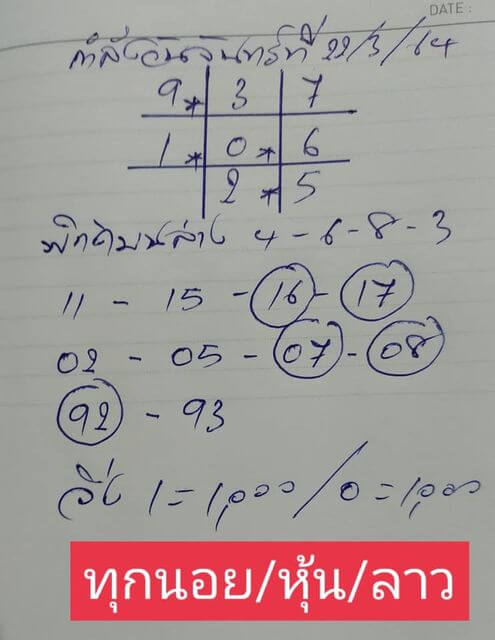 DATE :
กำลังวันจันทร์ที่ 22/3/64
9 * 3 7
1 * 0 * 6
2 * 5
4 - 6 - 8 - 3
11 - 15 - 16 - 17
02 - 05 - 07 - 08
92 - 93
วิ่ง 1 = 1,000 / 0 = 1,000
ทุกนอย/หุ้น/ลาว